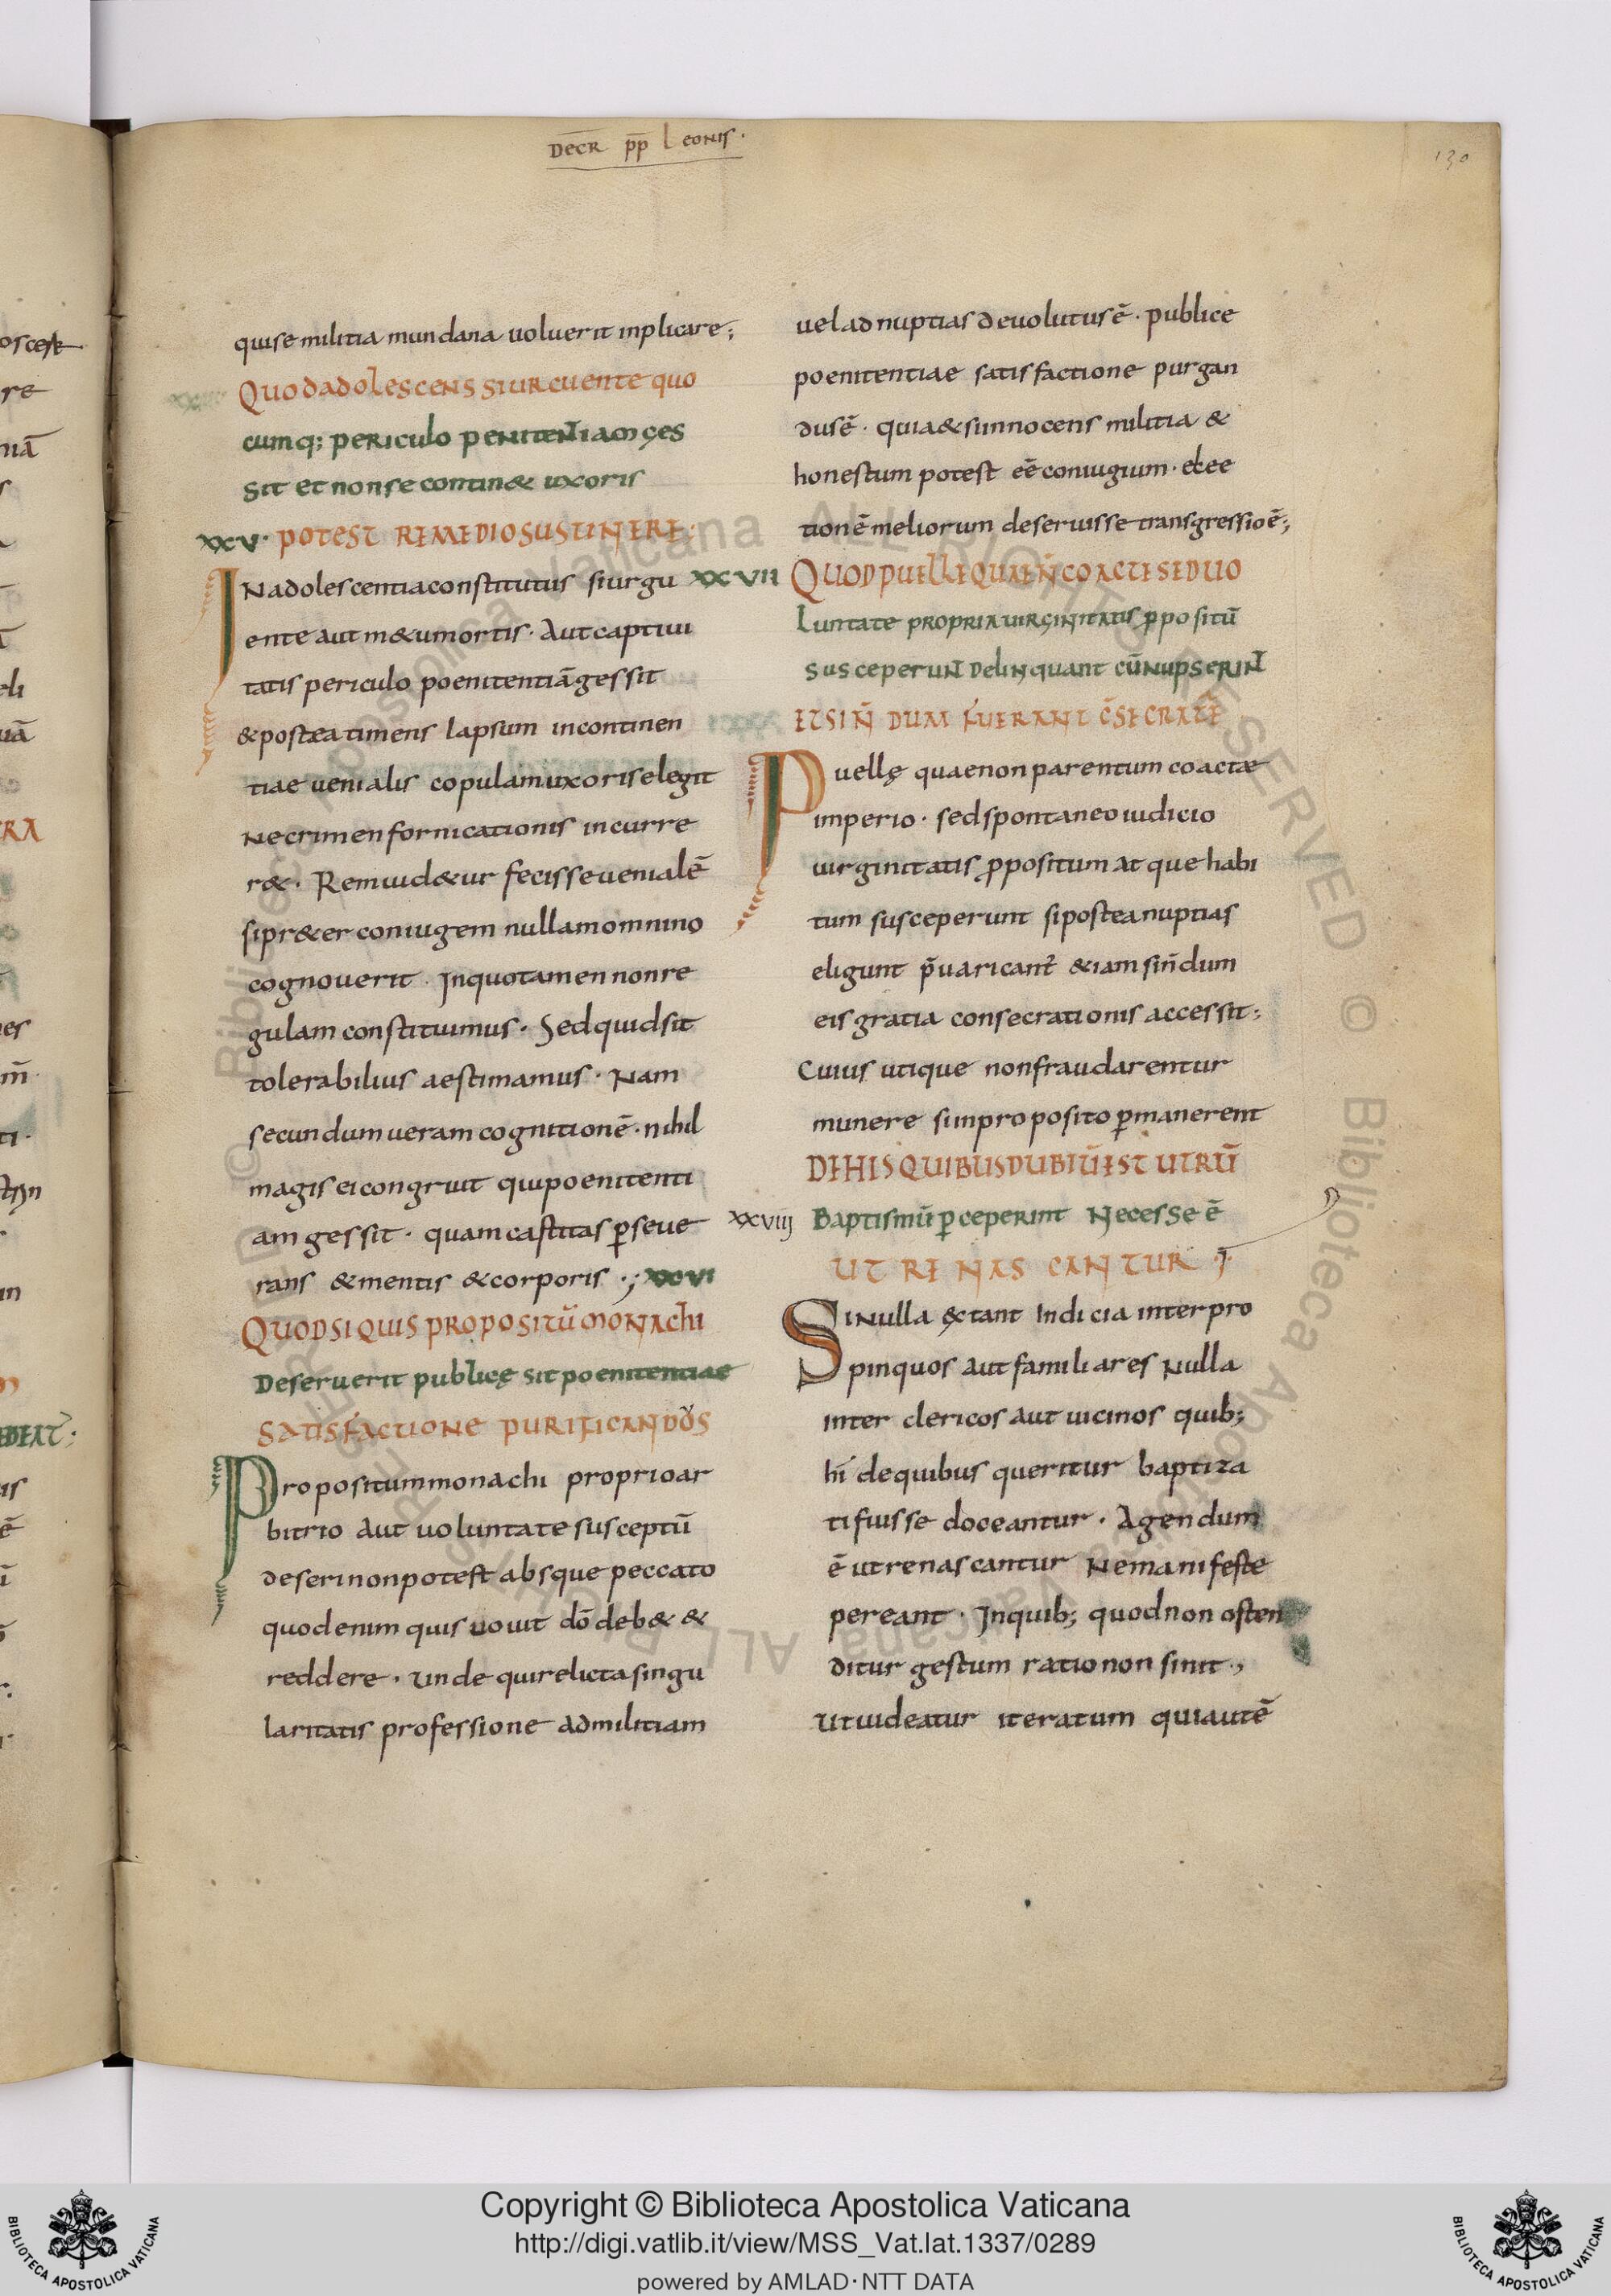 DECR pp LEONIS·
130
quise militia mundana uoluerit inplicare;
QUOD ADOLESCENS SI URGUENTE QUO
cumq; periculo penitentiam ges
sit et non se contin& uxoris
xxv· POTEST REMEDIO SUSTINERE·
IN adolescentia constitutus si urgu
ente aut m&u mortis· Aut captiui
tatis periculo poenitentiā gessit
& postea timens lapsum incontinen
tiae uenialis copulam uxoris elegit
Ne crimen fornicationis incurre
r&· Rem uid&ur fecisse uenialē
si pr&er coniugem nullam omnino
cognouerit· In quo tamen non re
gulam constituimus· Sed quid sit
tolerabilius aestimamus· Nam
secundum ueram cognitionē· nihil
magis ei congruit qui poenitenti
am gessit· quam castitas pseue
rans & mentis & corporis·; xxvi
QUOD SI QUIS PROPOSITŪ MONACHI
Deseruerit publicę sit poenitentiae
SATISFACTIONE PURIFICANDUS
Propositum monachi proprio ar
bitrio aut uoluntate susceptū
deseri non potest absque peccato
quod enim quis uouit dō deb& &
reddere· Unde qui relicta singu
laritatis professione ad militiam
uel ad nuptias deuolutus ē· publice
poenitentiae satisfactione purgan
dus ē· quia & si innocens militia &
honestum potest eē coniugium· elec
tionē meliorum deseruisse transgressio ē;
xxvii QUOD PUELLE QUAE N̄ COACTE SED UO
Luntate propria uirginitatis ppositū
susceperunt delinquant cū nupserint
ETSI N̄ DUM FUERANT C̄SECRATE
Puellę quae non parentum coactae
imperio· sed spontaneo iudicio
uirginitatis ppositum atque habi
tum susceperunt si postea nuptias
eligunt p̄uaricant̄ &iam si n̄dum
eis gratia consecrationis accessit;
Cuius utique non fraudarentur
munere si in proposito pmanerent
DE HIS QUIBUS DUBIŪ EST UTRŪ
xxviij Baptismū pceperint Necesse ē
UT RENASCANTUR·
Si nulla extant indicia inter pro
pinquos aut familiares nulla
inter clericos aut uicinos quib;
hi de quibus queritur baptiza
ti fuisse doceantur· Agendum
ē ut renascantur Ne manifeste
pereant· In quib; quod non osten
ditur gestum ratio non sinit·,
ut uideatur iteratum quia utē